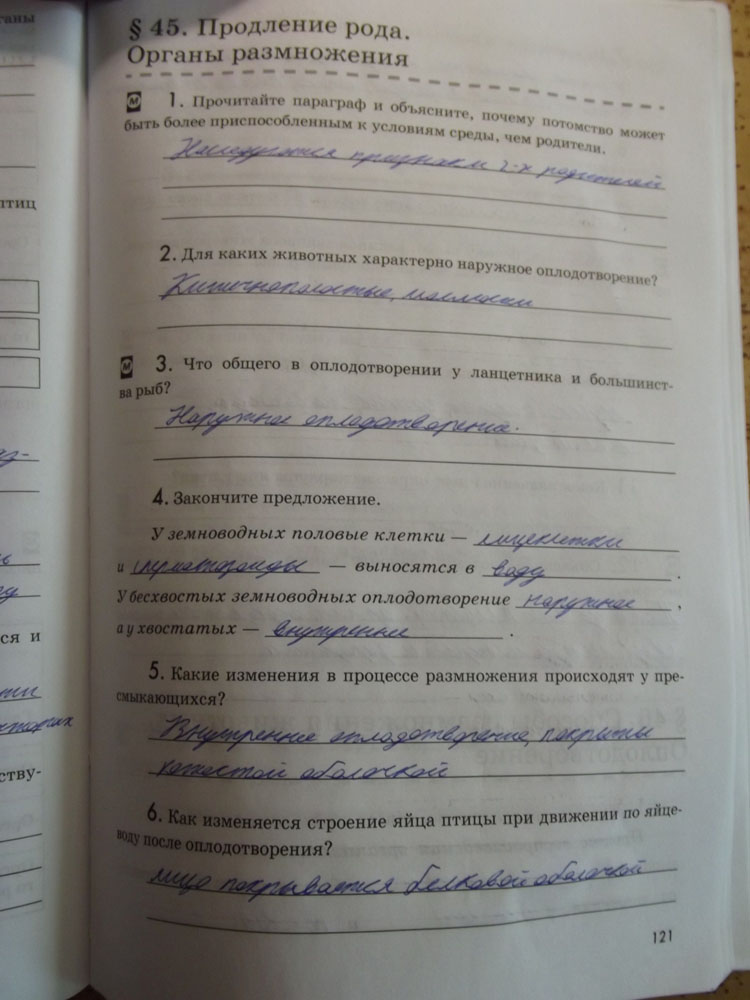 ганы
§ 45. Продление рода.
Органы размножения
1. Прочитайте параграф и объясните, почему потомство может
быть более приспособленным к условиям среды, чем родители.
Наследуются признаки 2-х родителей
птиц
2. Для каких животных характерно наружное оплодотворение?
Кишечнополостные, моллюски
3. Что общего в оплодотворении у ланцетника и большинст-
ва рыб?
Наружное оплодотворение.
4. Закончите предложение.
У земноводных половые клетки — яйцеклетки
и сперматозоиды — выносятся в воду .
У бесхвостых земноводных оплодотворение наружное ,
а у хвостатых — внутреннее .
ся и
5. Какие изменения в процессе размножения происходят у пре-
смыкающихся?
Внутреннее оплодотворение, покрыты
кожистой оболочкой
ству-
6. Как изменяется строение яйца птицы при движении по яйце-
воду после оплодотворения?
яйцо покрывается белковой оболочкой
121